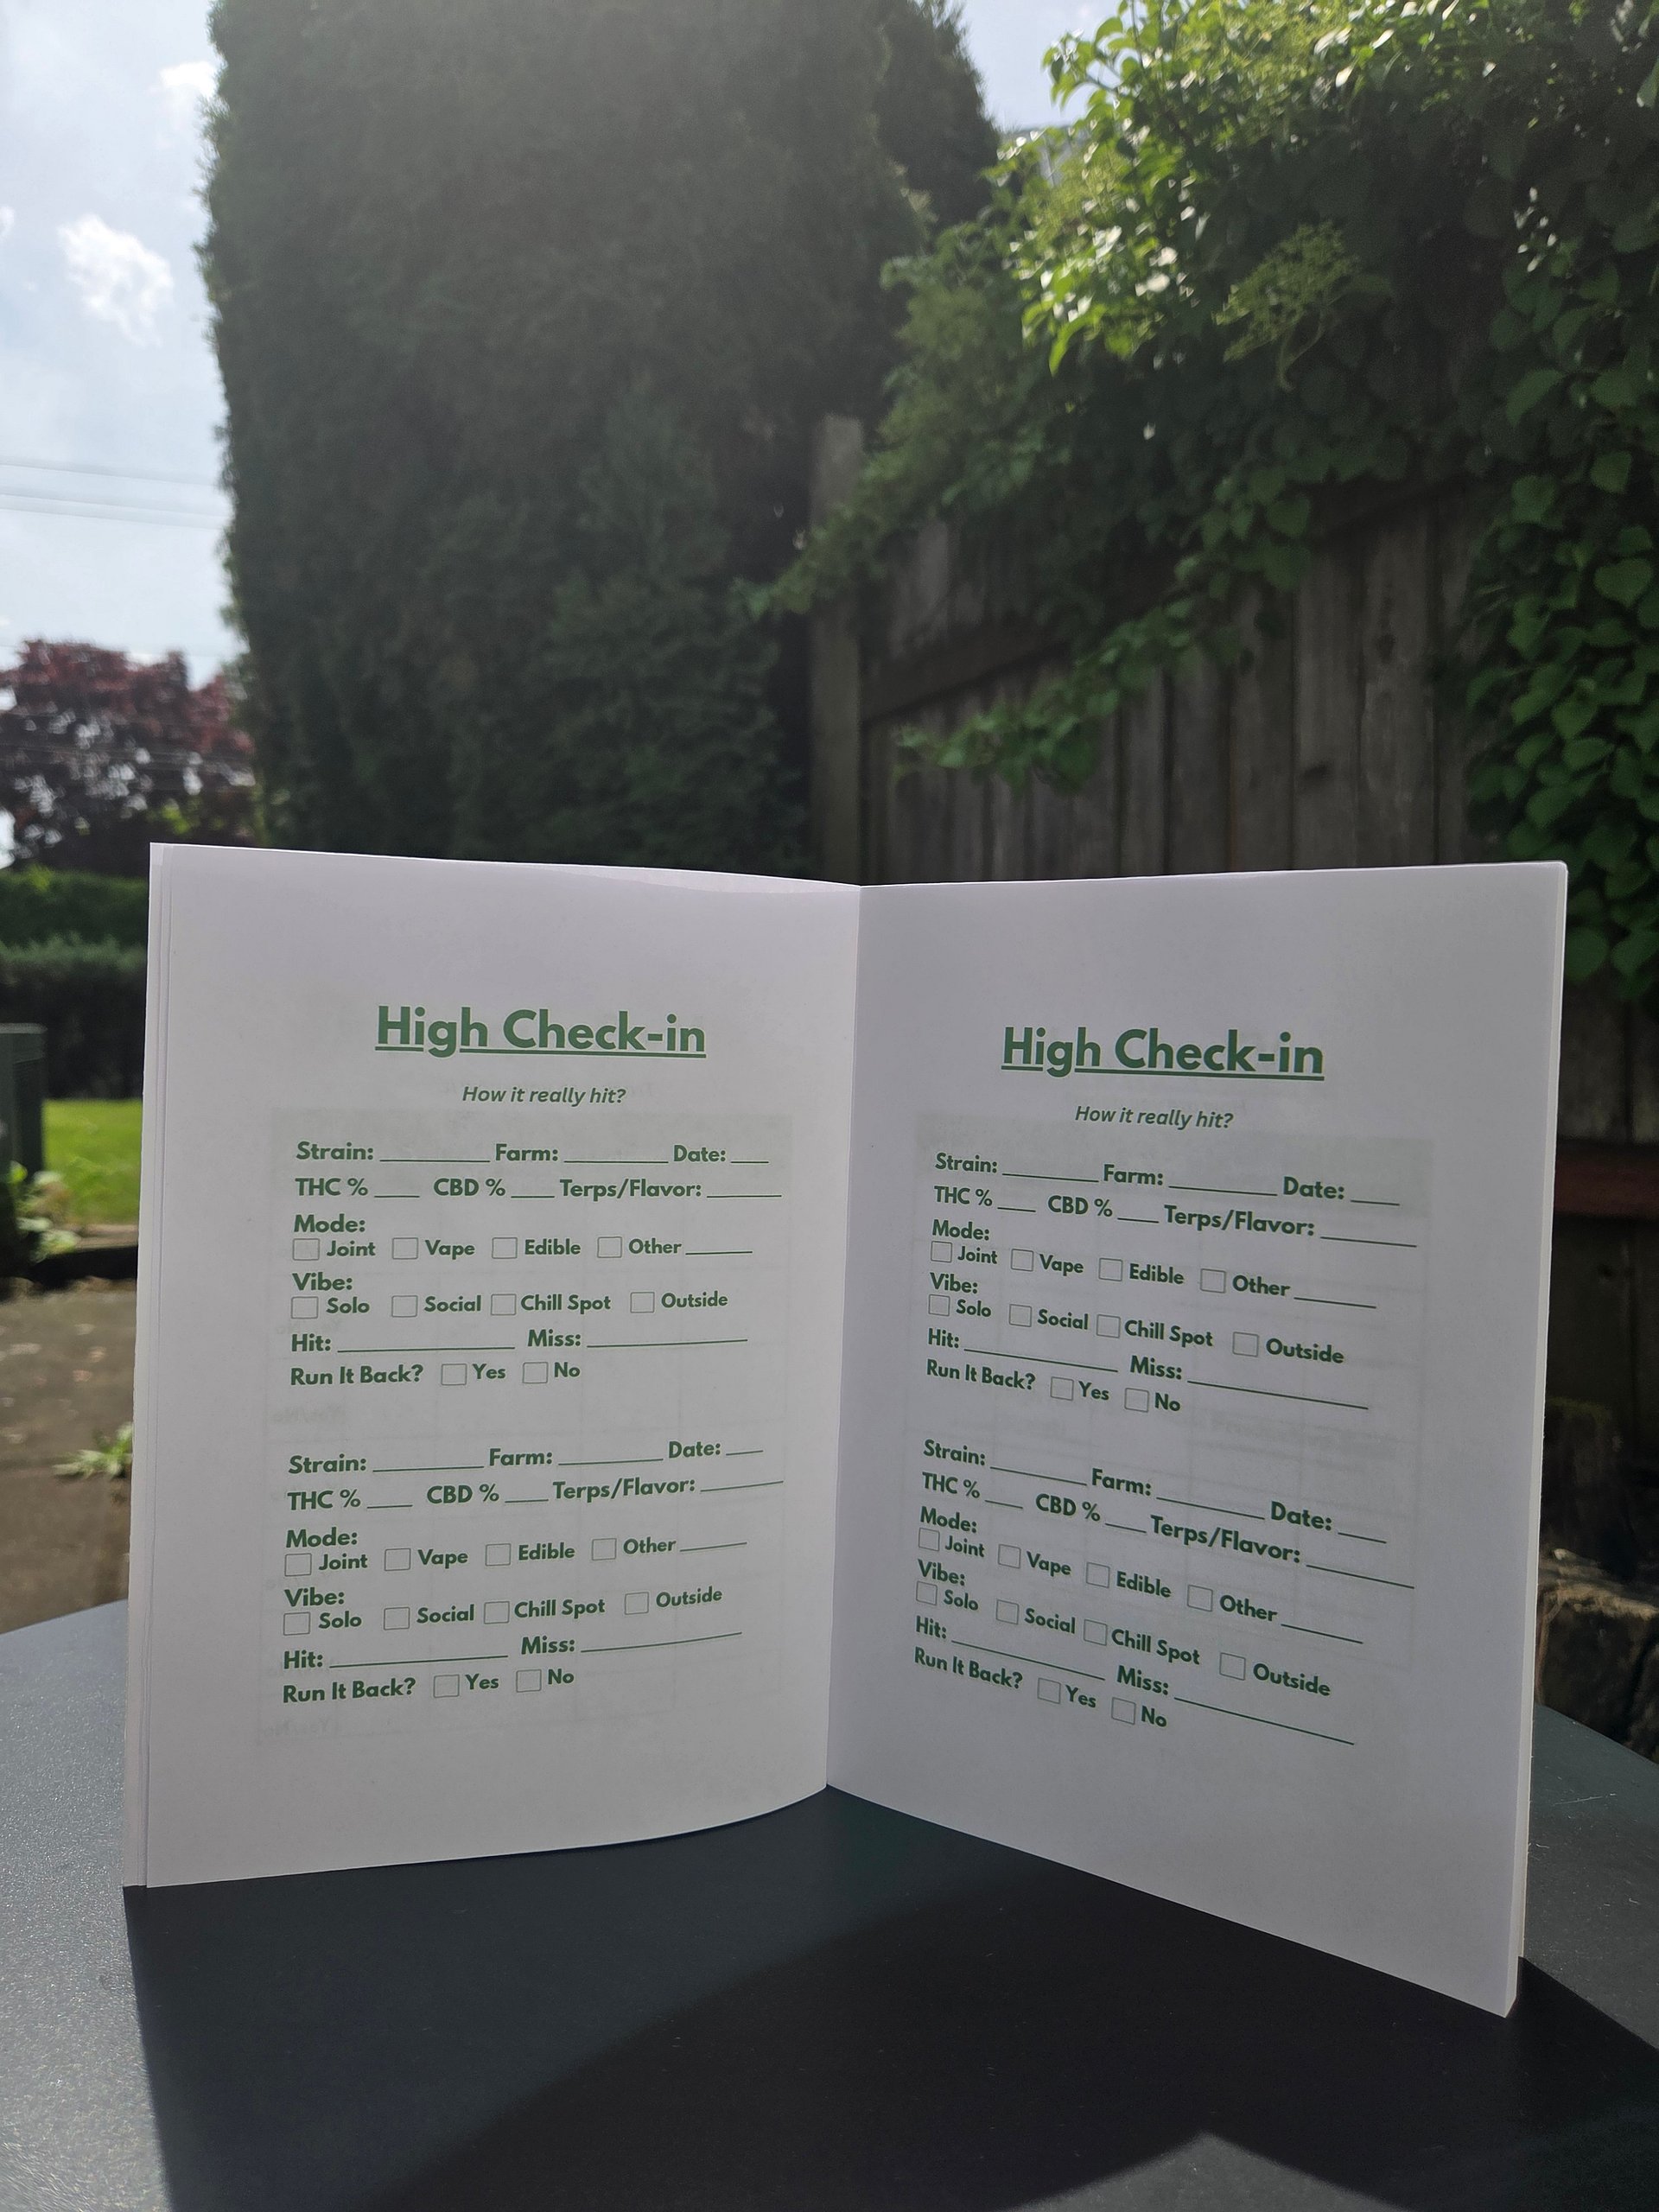 High Check-in
How it really hit?
Strain: ________ Farm: ________ Date: ___
THC % ___ CBD % ___ Terps/Flavor: ______
Mode:
Joint Vape Edible Other ______
Vibe:
Solo Social Chill Spot Outside
Hit: ______________ Miss: ______________
Run It Back? Yes No
Strain: ________ Farm: ________ Date: ___
THC % ___ CBD % ___ Terps/Flavor: ______
Mode:
Joint Vape Edible Other ______
Vibe:
Solo Social Chill Spot Outside
Hit: ______________ Miss: ______________
Run It Back? Yes No
High Check-in
How it really hit?
Strain: ________ Farm: ________ Date: ___
THC % ___ CBD % ___ Terps/Flavor: ______
Mode:
Joint Vape Edible Other ______
Vibe:
Solo Social Chill Spot Outside
Hit: ______________ Miss: ______________
Run It Back? Yes No
Strain: ________ Farm: ________ Date: ___
THC % ___ CBD % ___ Terps/Flavor: ______
Mode:
Joint Vape Edible Other ______
Vibe:
Solo Social Chill Spot Outside
Hit: ______________ Miss: ______________
Run It Back? Yes No